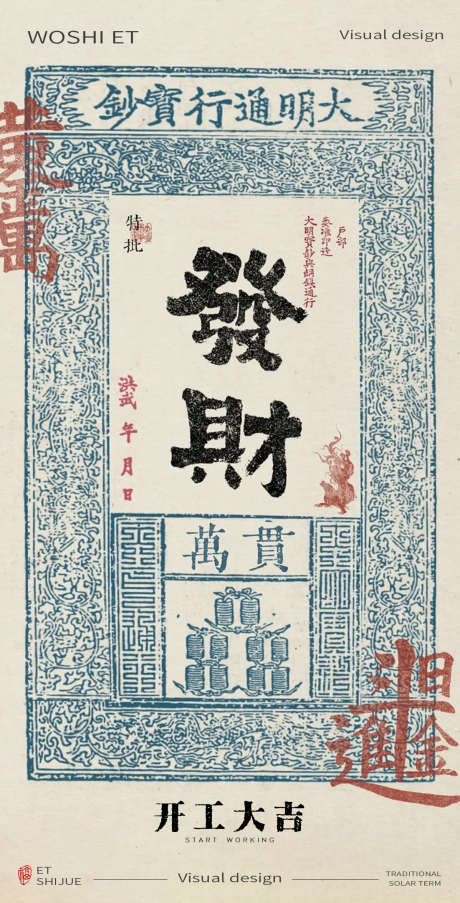 WOSHI ET
Visual design
大明通行寳鈔
黄金萬
特批
戶部
奏准印造
大明寳鈔與銅錢通行
發財
洪武 年 月 日
貫萬
日進斗金
开工大吉
START WORKING
ET
SHIJUE
Visual design
TRADITIONAL
SOLAR TERM